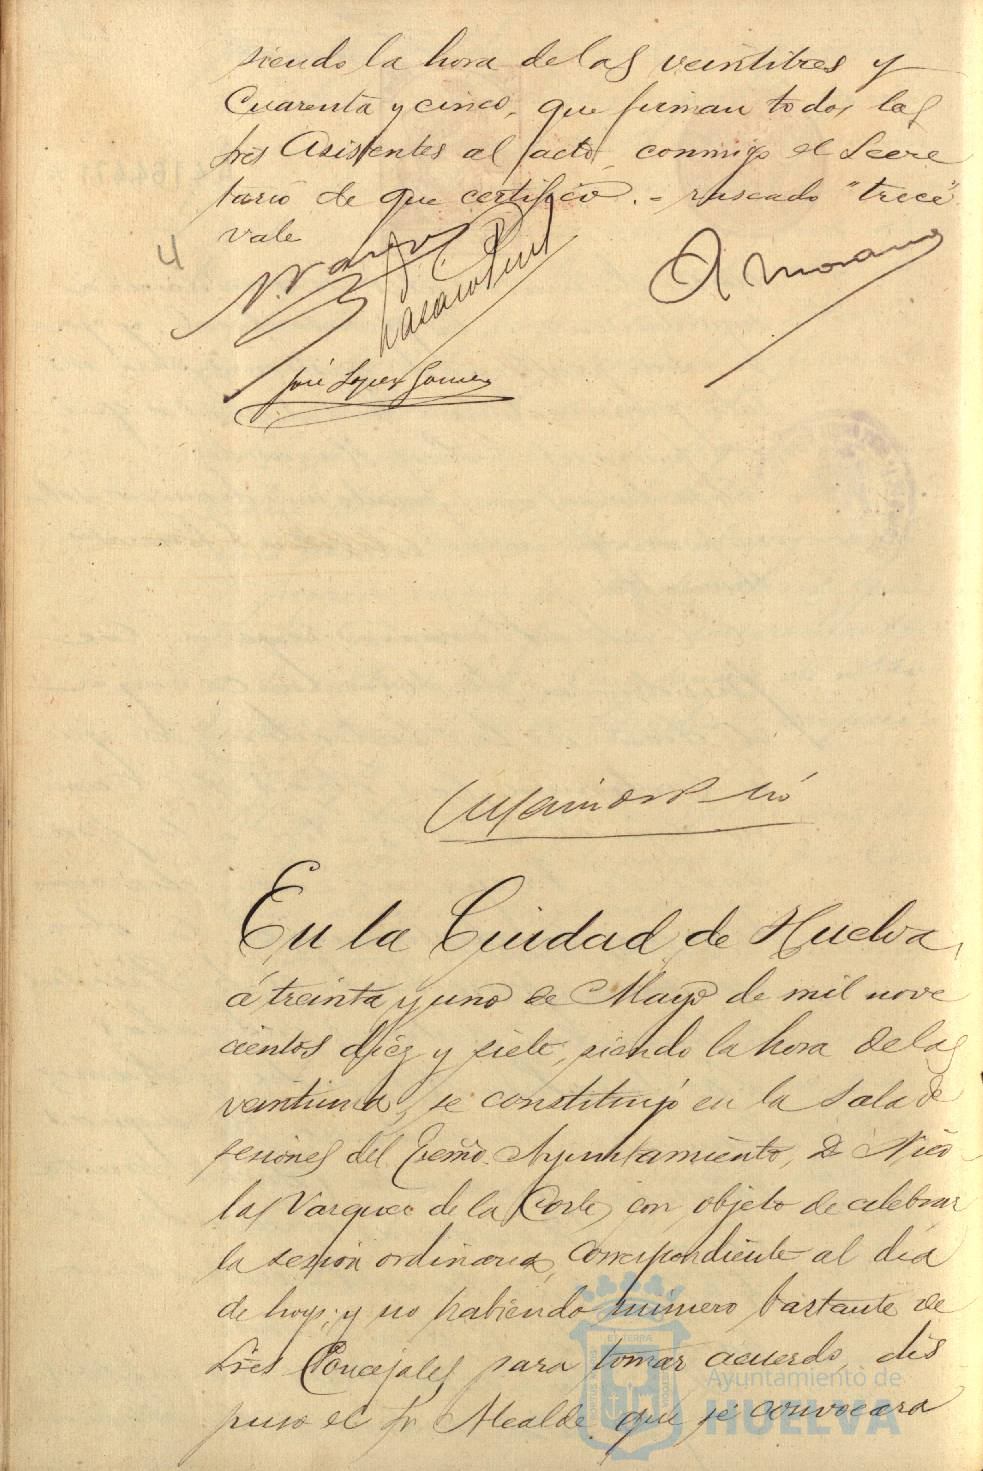 siendo la hora de las veintitres y
Cuarenta y cinco, que firman todos los
Sres Asistentes al acto, conmigo el Secre
tario de que certifico. - rascado "trece"
vale
4
A Morano
José Lopez Gomez
En la Ciudad de Huelva,
á treinta y uno de Mayo de mil nove
cientos diez y siete, siendo la hora de las
veintiuna, se constituyó en la Sala de
sesiones del Excmo. Ayuntamiento, D. Nico
las Vazquez de la Corte, con objeto de celebrar
la sesion ordinaria, correspondiente al dia
de hoy; y no habiendo número bastante de
Sres Concejales para tomar acuerdo, dis
puso el Sr Alcalde que se convocara
Ayuntamiento de
HUELVA